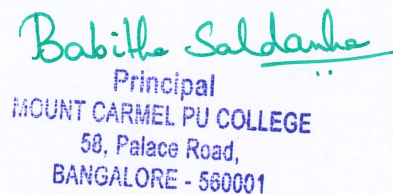 Babitha Saldanha
Principal
MOUNT CARMEL PU COLLEGE
58, Palace Road,
BANGALORE - 560001